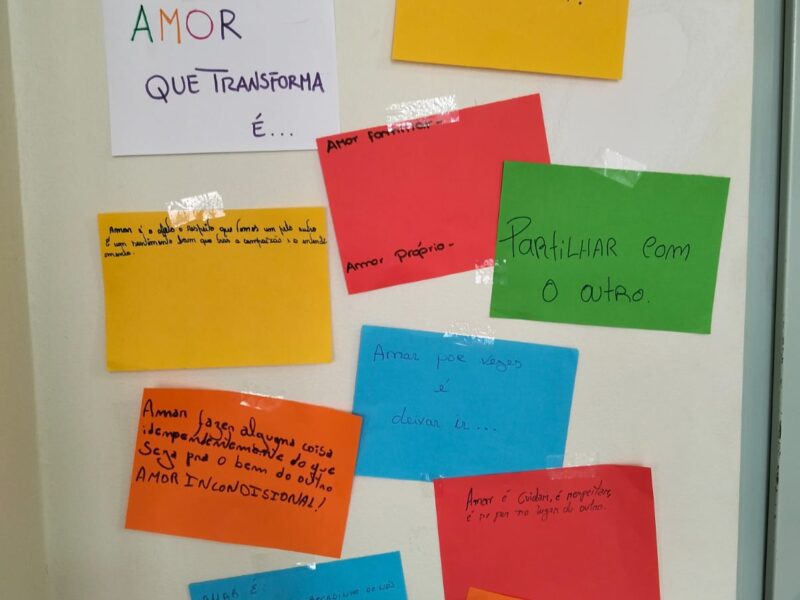 AMOR
QUE TRANSFORMA
É...
Amor familiar -
Amor próprio -
PARTILHAR com
o outro.
Amar é o afeto e respeito que temos um pelo outro
É um sentimento bom que trás a compaixão e o entendi
mento.
Amar por vezes
é
deixar ir...
Amar fazer alguma coisa
idenpendentemente do que
Sega pra o bem do outro
AMOR INCONDISIONAL!
Amar é Cuidar, é respeitar,
é se por no lugar do outro.
AMAR É
DE NÓS